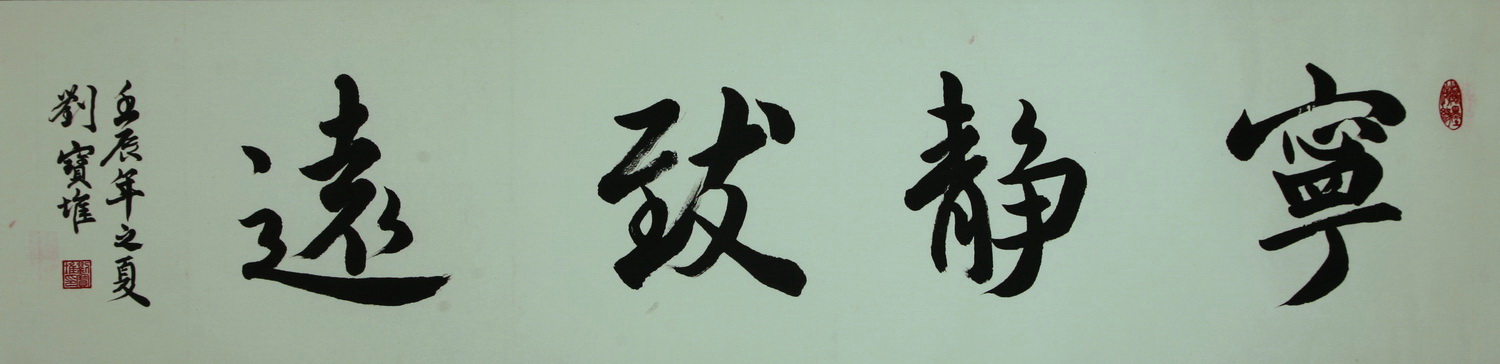 寧靜致遠
壬辰年之夏
劉寶堆